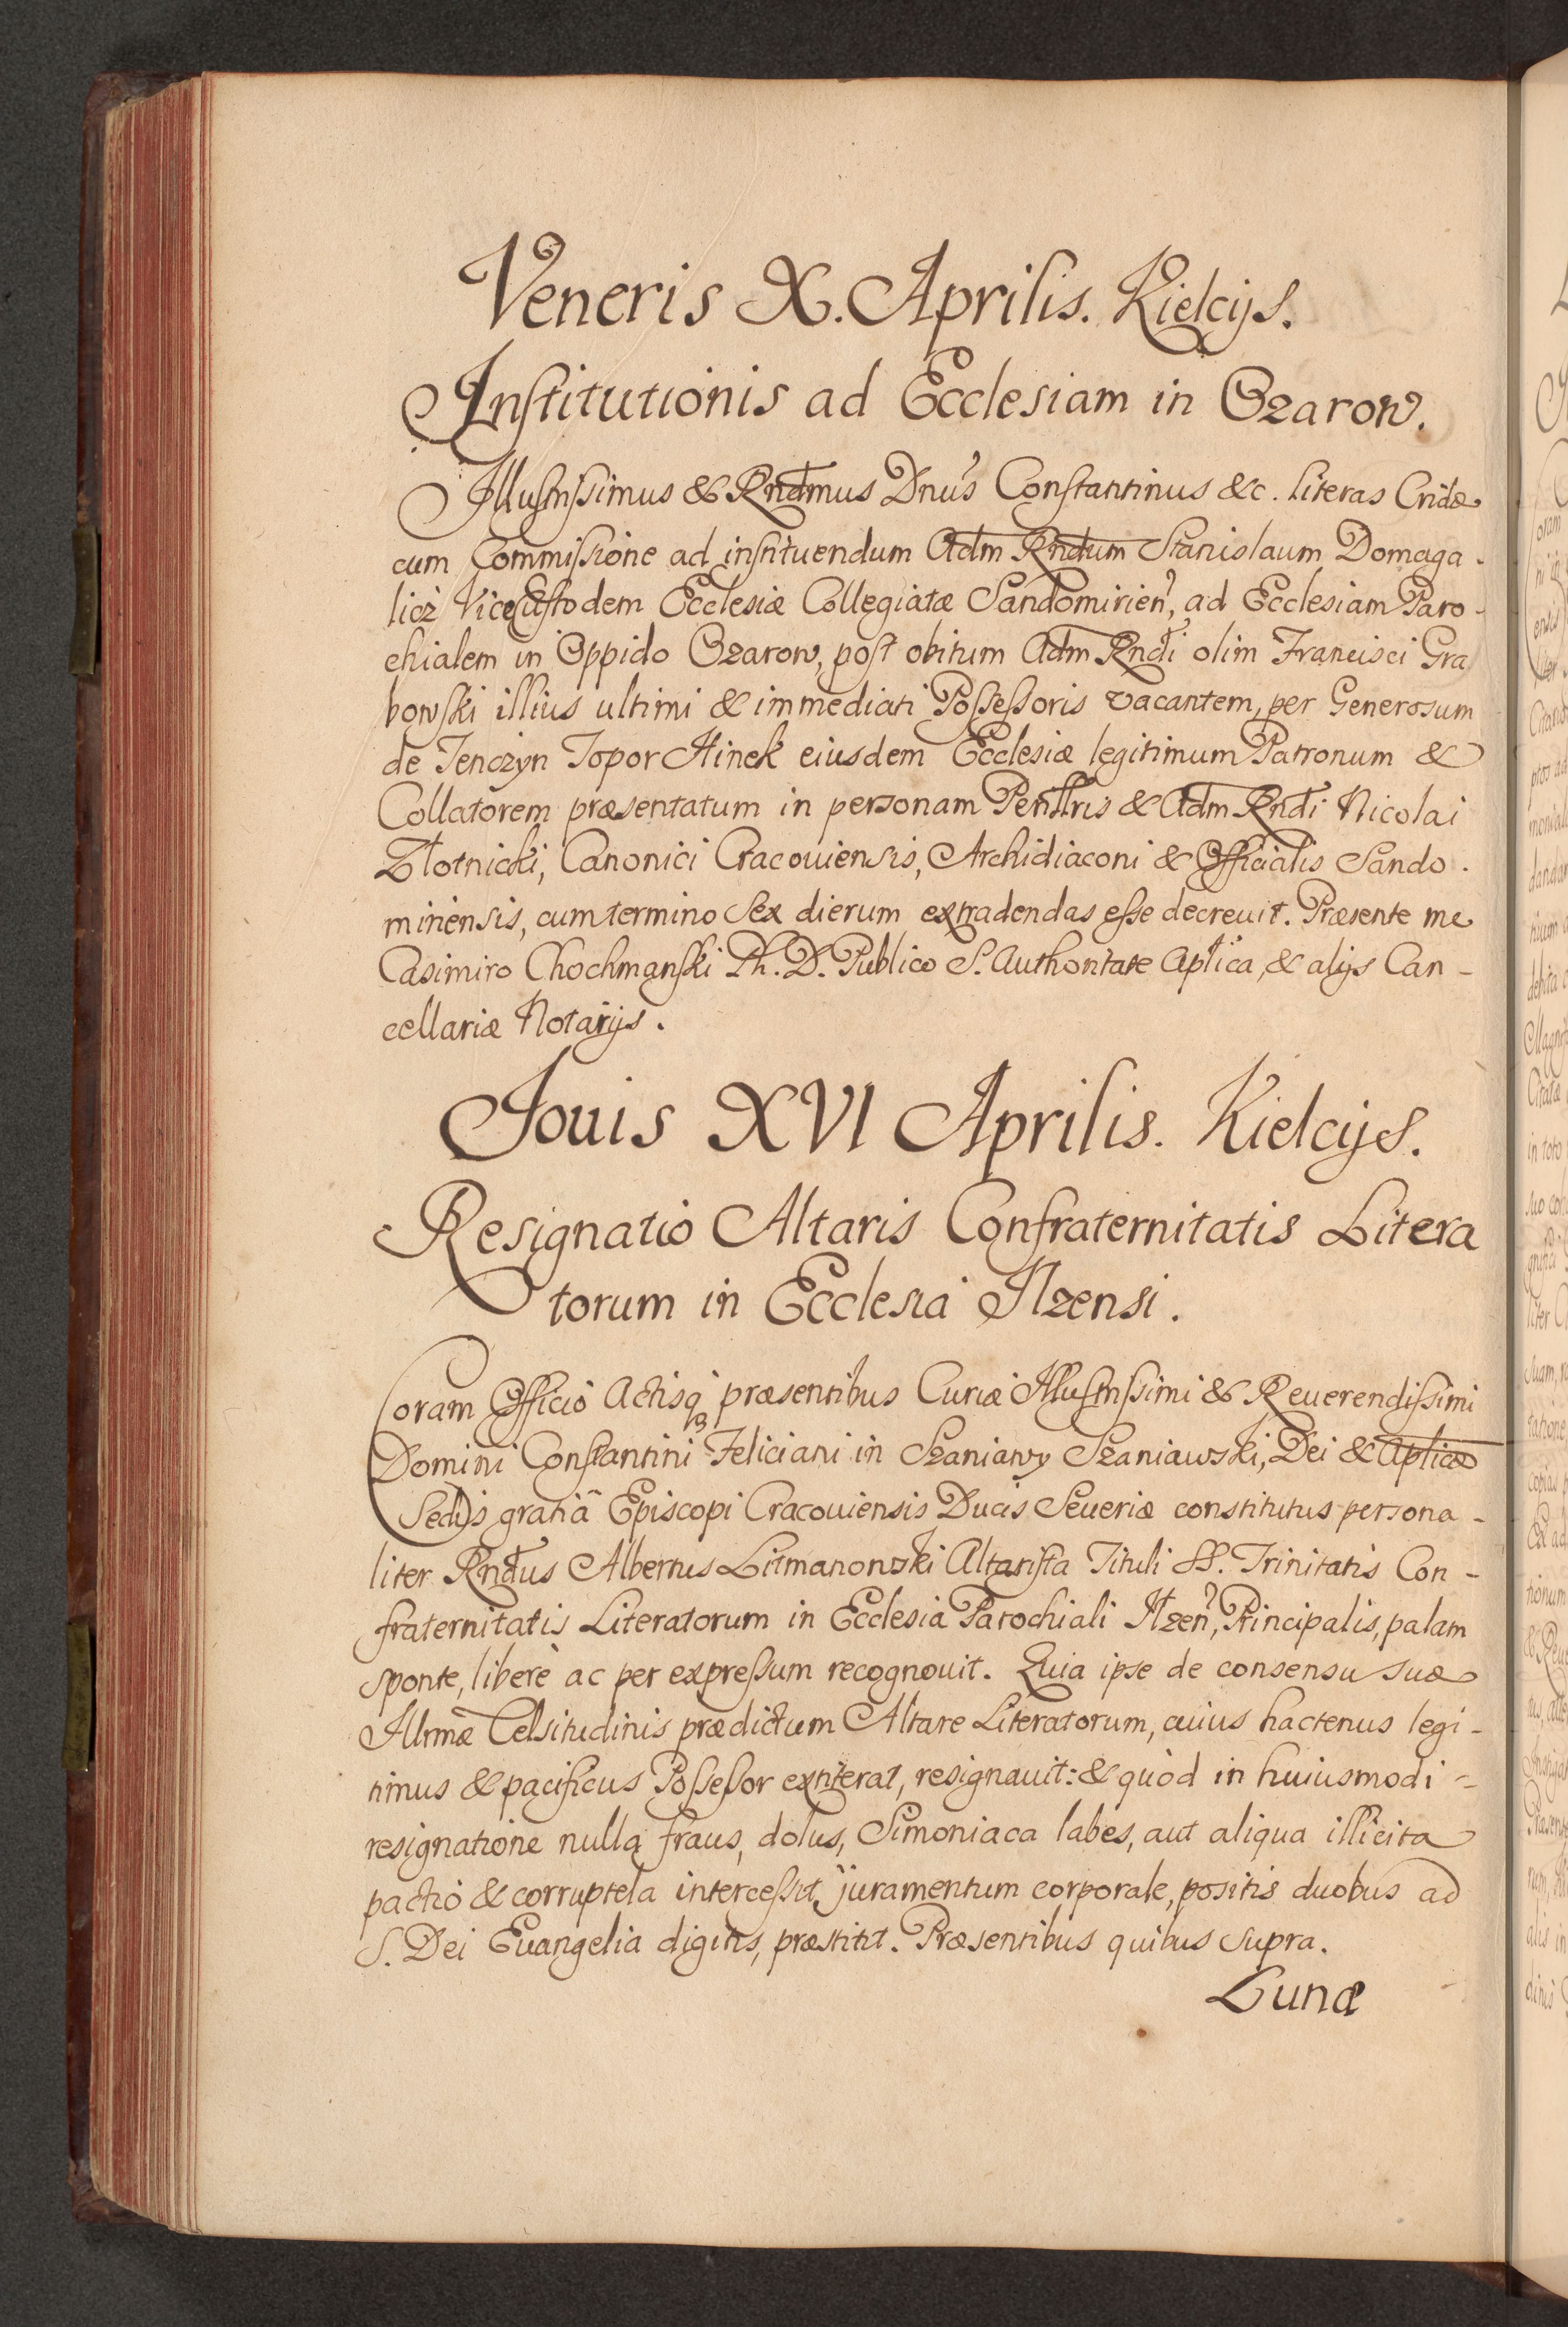 Veneris X. Aprilis. Kielcijs.
Institutionis ad Ecclesiam in Ozarow.
Illustrissimus & Rndmus Dnus Constantinus &c. literas Cridæ
cum Commissione ad instituendum Adm Rndum Stanislaum Domaga-
licz ViceCustodem Ecclesiæ Collegiatæ Sandomirien, ad Ecclesiam Paro-
chialem in Oppido Ozarow, post obitum Adm Rndi olim Francisci Gra
bowski illius ultimi & immediati Possessoris vacantem, per Generosum
de Tenczyn Topor Hinek eiusdem Ecclesiæ legitimum Patronum &
Collatorem præsentatum in personam Perillris & Adm Rndi Nicolai
Złotnicki, Canonici Cracouiensis, Archidiaconi & Officialis Sando-
miriensis, cum termino sex dierum extradendas esse decreuit. Præsente me
Casimiro Chochmanski Ph. D. Publico S. Authoritate Aplica, & alijs Can-
cellariæ Notarijs.
Jouis XVI Aprilis. Kielcijs.
Resignatio Altaris Confraternitatis Litera
torum in Ecclesia Ilzensi.
Coram Officio Actisq præsentibus Curiæ Illustrissimi & Reuerendissimi
Domini Constantini Feliciani in Szaniawy Szaniawski, Dei & Aplicæ
Sedis gratiâ Episcopi Cracouiensis Ducis Seueriæ constitutus persona-
liter Rndus Albertus Litmanowski Altarista Tituli SS. Trinitatis Con-
fraternitatis Literatorum in Ecclesia Parochiali Ilzen, Principalis, palam
sponte, liberè ac per expressum recognouit. Quia ipse de consensu suæ
Illrmæ Celsitudinis prædictum Altare Literatorum, cuius hactenus legi-
timus & pacificus Possessor extiterat, resignauit: & quòd in huiusmodi
resignatione nulla fraus, dolus, Simoniaca labes, aut aliqua illicita
pactio & corruptela intercessit, juramentum corporale, positis duobus ad
S. Dei Euangelia digitis, præstitit. Præsentibus quibus supra.
Lunæ